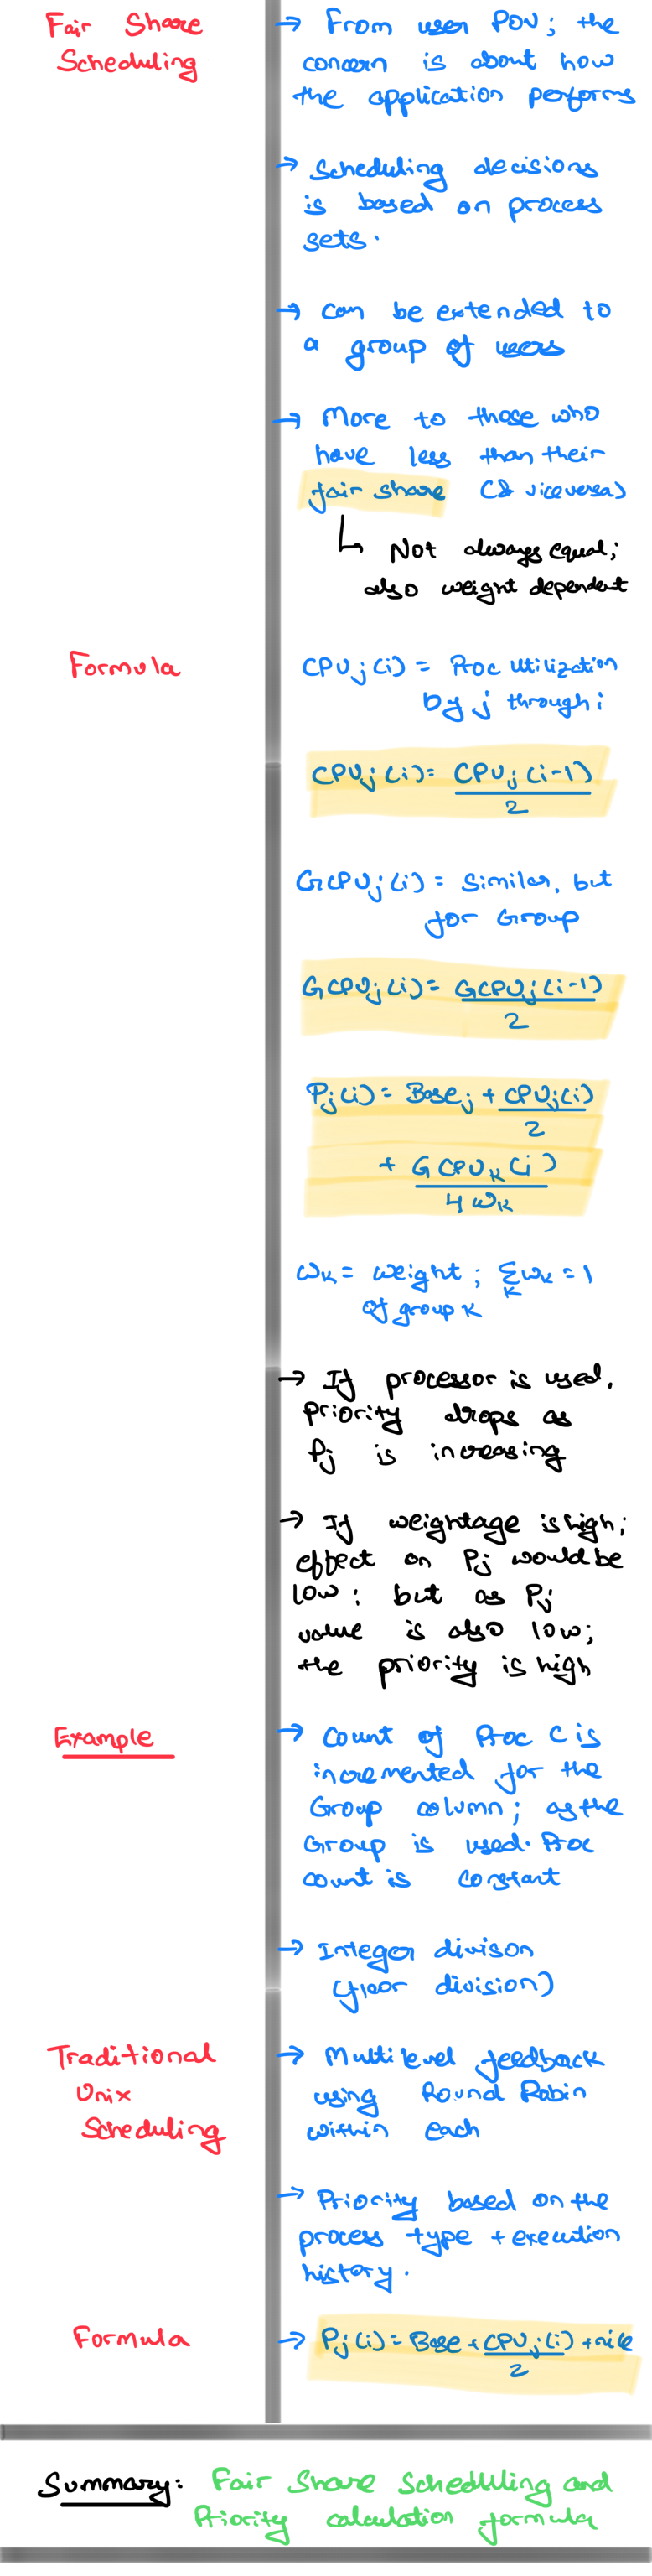 Fair Share
Scheduling
→ From user POV; the
concern is about how
the application performs
→ Scheduling decisions
is based on process
sets.
→ can be extended to
a group of users
→ More to those who
have less than their
fair share (& viceversa)
Not always equal;
also weight dependent
Formula
CPUj(i) = Proc Utilization
by j through i
CPUj(i) = CPUj(i-1)
2
GCPUj(i) = Similar, but
for Group
GCPUj(i) = GCPUj(i-1)
2
Pj(i) = Basej + CPUj(i)
2
+ GCPUk(i)
4 wk
wk = weight ; Σ wk = 1
k
of group k
→ If processor is used,
Priority drops as
Pj is increasing
→ If weightage is high;
effect on Pj would be
low; but as Pj
value is also low;
the priority is high
Example
→ Count of Proc C is
incremented for the
Group column; as the
Group is used. Proc
count is constant
→ Integer divison
(floor division)
Traditional
Unix
Scheduling
→ Multilevel feedback
using Round Robin
within each
→ Priority based on the
process type + execution
history.
Formula
→ Pj(i) = Base + CPUj(i) + nice
2
Summary: Fair Share Scheduling and
Priority calculation formula